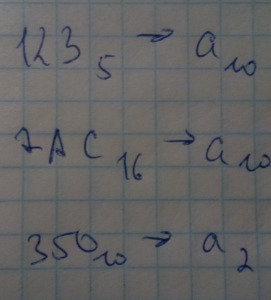 123₅ → a₁₀
7AC₁₆ → a₁₀
350₁₀ → a₂